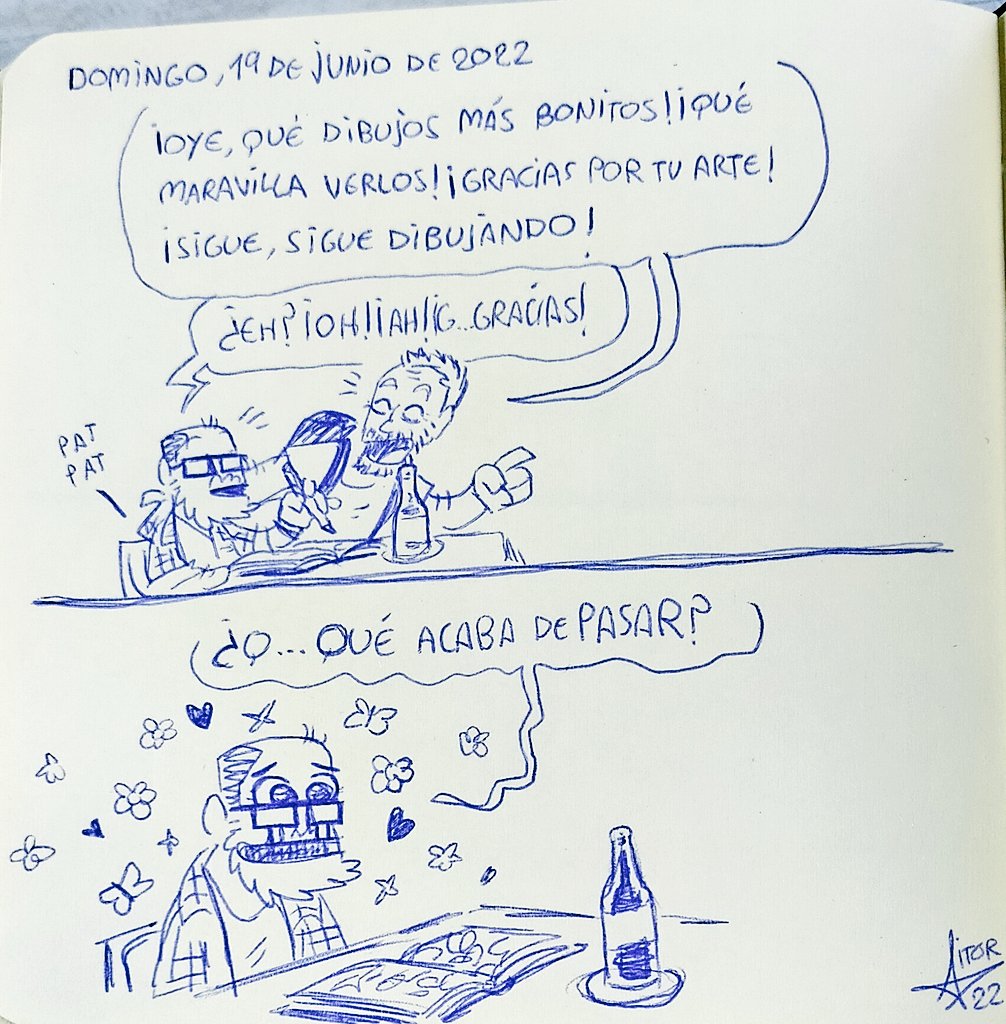 DOMINGO, 19 DE JUNIO DE 2022
¡OYE, QUÉ DIBUJOS MÁS BONITOS! ¡QUÉ
MARAVILLA VERLOS! ¡GRACIAS POR TU ARTE!
¡SIGUE, SIGUE DIBUJANDO!
¿EH? ¡OH! ¡AH! ¡G...GRACIAS!
PAT
PAT
¿Q... QUÉ ACABA DE PASAR?
AITOR
22